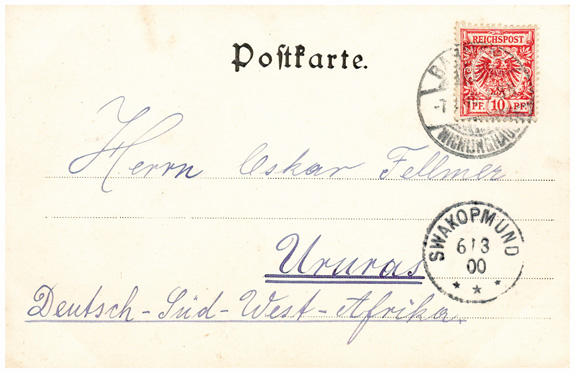 Postkarte.
REICHSPOST
PF. 10 PF.
WICHLINGHAUSEN
Herrn Oskar Fellmer
SWAKOPMUND
6/3
00
Ururas
Deutsch-Süd-West-Afrika.